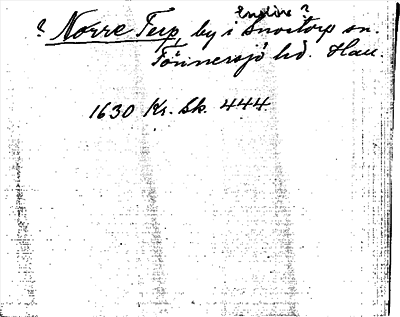 Enslöv?
? Norre Terp, by i Snöstorp sn.
Tönnersjö hd. Hall.
1630 Kr. Sk. 444.